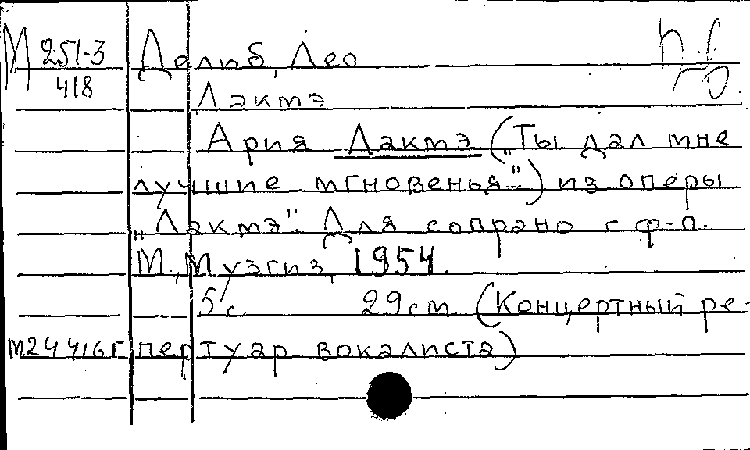 М 251-3 Делиб, Лео
418
Лактэ
Ария Лактэ ("Ты дал мне
лучшие мгновенья") из оперы
„Лактэ". Для сопрано с ф-п.
М., Музгиз, 1954.
5 с. 29 см (Концертный ре-
М24416г пертуар вокалиста)